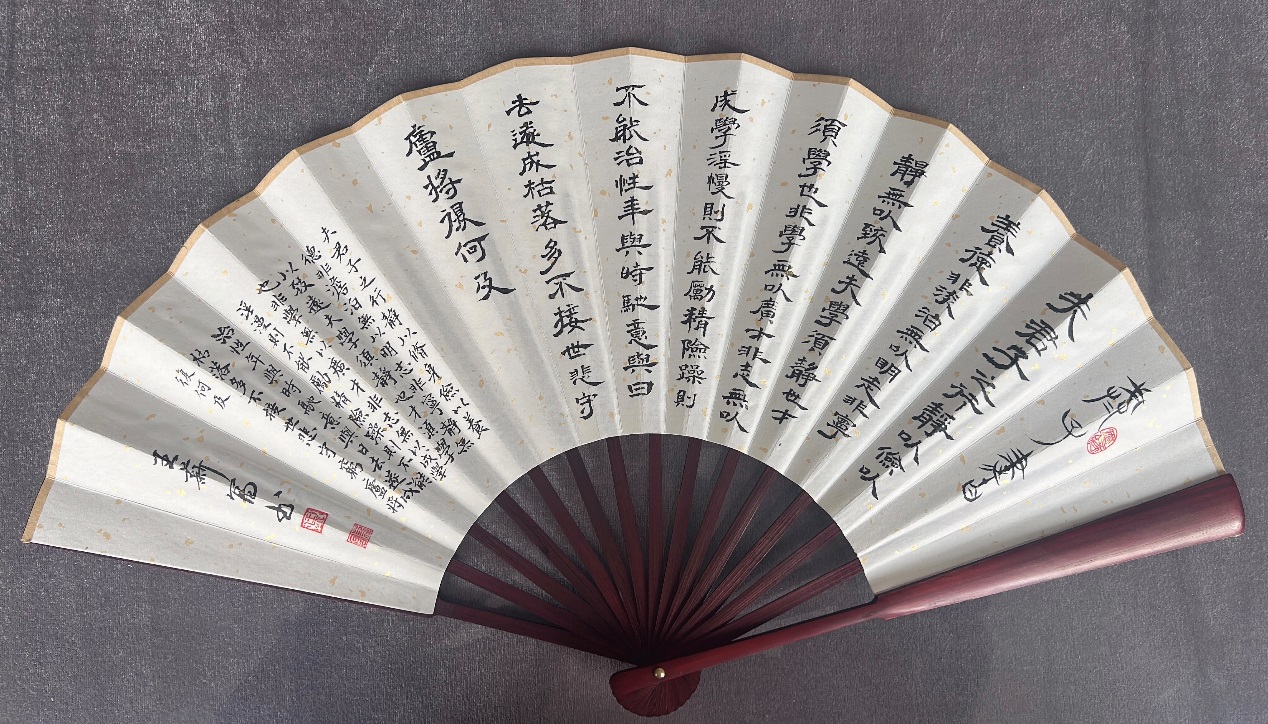 夫君子之行靜以儉以
養德非淡泊無以明志非寧
靜無以致遠夫學須靜也才
須學也非學無以廣才非志無以
成學淫慢則不能勵精險躁則
不能治性年與時馳意與日
去遂成枯落多不接世悲守
廬將復何及
夫君子之行靜以修身儉以養
德非澹泊無以明志非寧靜無
以致遠夫學須靜也才須學
也非學無以廣才非志無以成學
淫慢則不能勵精險躁則不能
治性年與時馳意與日去遂成
枯落多不接世悲守窮廬將
復何及